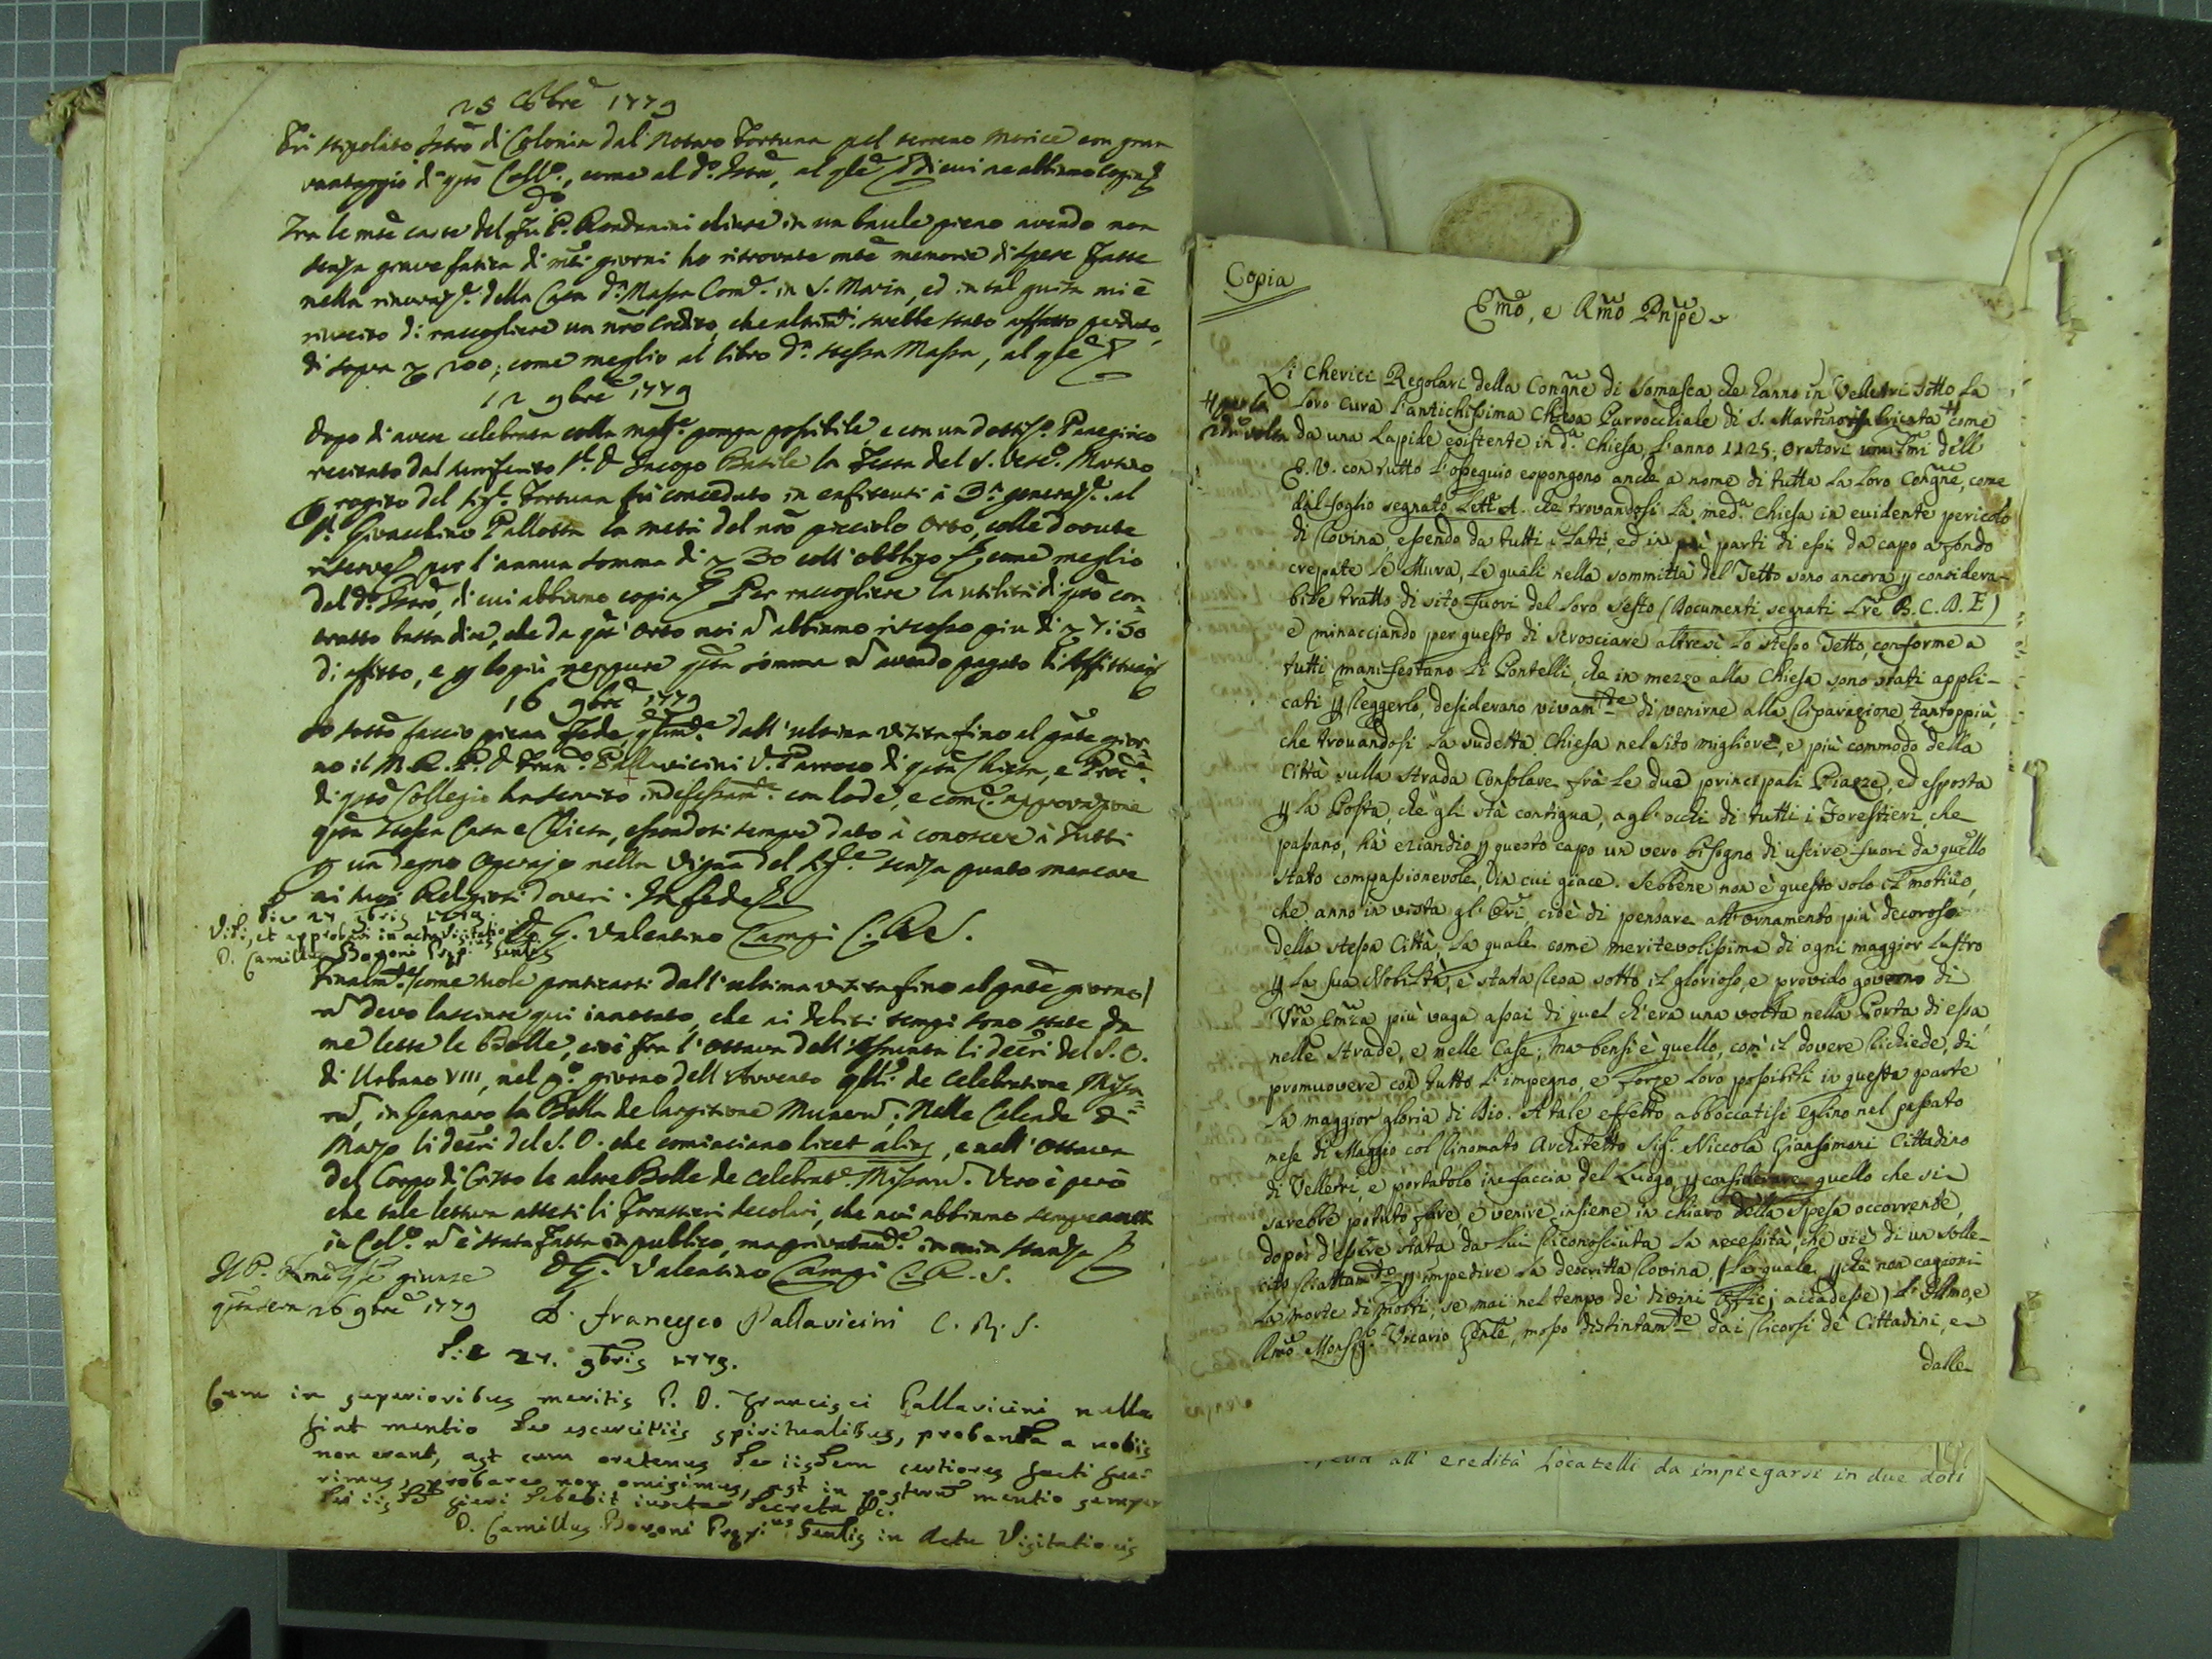 25 8bre 1779
Fù stipolato Istrō di Colonia dal Notaro Fortuna pel terreno Morice con gran
vantaggio di qsto Coll.o, come al d.o Istrō, al qle di cui ne abbiamo copia
do
Tra le mte carte del Fù P. Rondanini chiuse in un baule pieno avendo non
senza grave fatica di mti giorni ho ritrovate mte memorie di spese fatte
nella rinovaz.e della Casa d.a Massa Com.e in S. Maria, ed in tal guisa mi è
riuscito di raccogliere un nrō credito, che altrim.ti sarebbe stato affatto perduto,
di sopra 200; come meglio al libro d.a stessa Massa, al qle
12 9bre 1779
Dopo di avere celebrata colla magg.e pompa possibile, e con un dottiss.o Panegirico
recitato dal Basile la Festa del S. Vesc.o Martino
rogito del Sig.r Fortuna fù conceduto in enfiteusi à 3.a generaz.e al
S.r Givacchino Pallotta la metà del nrō picciolo orto, colle dovute
riserve per l'annua somma di 30 coll'obbligo come meglio
del d.o Istrō, di cui abbiamo copia Per raccogliere la utilità di qsto con-
tratto basta dire, che da qst'orto noi abbiamo riscosso più di 7:50
di affitto, e p lo più neppure qsta somma avendo pagato li Affittuarj
16 9bre 1779
Io sottō faccio piena Fede, qlm.e dall'ultima visita fino al pnte gior-
no il M. R. P. D. Fran.co Pallavicini V. Parroco di qsta Chiesa, e Proc.e
di qsto Collegio ha servito indefessam.te con lode, e com.e approvazione
qsta stessa Casa e Chiesa, essendosi sempre dato à conoscere à tutti
p un degno Operajo nella Vigna del Sig.re senza punto mancare
ai suoi Religiosi doveri. In fede
Die 27 9bris 1779.
Vidi, et approbavi in actu Visitationis D. G. Valentino Campi C. R. S.
D. Camillus Bovoni Prep.us Gentis
Finalm.te (come suole praticarsi dall'ultima visita fino al pnte giorno)
devo lasciare qui annotato, che ai debiti tempi sono state da
me lette le Bolle, cioè fra l'ottava dell'Assunta li decri del S. O.
di Urbano VIII, nel p.o giorno dell'Avvento qlli de Celebratione Missa-
rū, in Gennaro la Bolla de largitione Munerū; Nelle Calende di
Marzo li decri del S. O. che cominciano licet alias, e nell'Ottava
del Corpo di Cristo le altre Bolle de celebrat.e Missarū. Vero è però
che tale lettura attesi li Forastieri secolari, che noi abbiamo sempre avuti
in Col.o è stata fatta in publico, ma privatam.e in mia stanza
Il P. giunse D. G. Valentino Campi C. R. S.
qsta sera 26 9bre 1779 D. Francesco Pallavicini C. R. S.
Die 27. 9bris 1779.
Cum in superioribus meritis P. D. Francisci Pallavicini nulla
fiat mentio de exercitiis spiritualibus, probanda a nobis
non erant, ast cum oretenus de iisdem certiores facti fue-
rimus, probare non omisimus, ast in posterū mentio semper
de iis fieri debebit iuxta decreta &c.
D. Camillus Bovoni Prep.us Gentis in Actu Visitationis
Copia
Emō, e Rmō Pnpe
Li Cherici Regolari della Congne di Somasca, che hanno in Velletri sotto la
loro Cura l'antichissima Chiesa Parrocchiale di S. Martino fabricata come
# per la
2da volta
da una Lapide esistente in d.a Chiesa, l'anno 1125; Oratori umilmi dell'
E. V. con tutto l'ossequio espongono anche a nome di tutta la loro Congne, come
dal foglio segnato Lett. A. che trovandosi la med.a Chiesa in evidente pericolo
di Rovina, essendo da tutti i lati, ed in più parti di essi da capo a fondo
crepate le Mura, le quali nella sommittà del Tetto sono ancora p considera-
bile tratto di sito fuori del loro sesto (Documenti segnati Lre B. C. D. E)
e minacciando per questo di scrosciare altresì lo stesso Tetto, conforme a
tutti manifestano li Pontelli, che in mezzo alla Chiesa sono stati appli-
cati p Reggerlo, desiderano vivamte di venirne alla Riparazione, tantoppiù,
che trovandosi la sudetta Chiesa nel sito migliore, e più commodo della
Città sulla strada Consolare frà le due principali Piazze, ed esposta
p la Posta, che gli stà contigua, agl'occhi di tutti i Forestieri, che
passano, hà eziandio p questo capo un vero bisogno di uscire fuori da quello
stato compassionevole, in cui giace. Sebbene non è questo solo il motivo,
che anno in vista gl'Ori, cioè di pensare all'ornamento più decoroso
della stessa Città, la quale come meritevolissima di ogni maggior lustro
p la sua Nobiltà, è stata Resa sotto il glorioso, e provido governo di
Vrā Emza più vaga assai di quel ch'era una volta nella Porta di essa,
nelle strade, e nelle Case; ma bensì è quello, com'il dovere Richiede, di
promuovere con tutto l'impegno, e forze loro possibili in questa parte
la maggior gloria di Dio. A tale effetto abboccatisi eglino nel passato
mese di Maggio col Rinomato Architetto Sig.r Niccola Giansimoni Cittadino
di Velletri, e portatolo in faccia del Luogo p considerare quello che si
sarebbe potuto fare, e venire insieme in chiaro della spesa occorrente,
dopo d'essere stata da lui Riconosciuta la necessità, che vi è di un solle-
cito Riattamto p impedire la descritta Rovina (la quale p chè non cagioni
la morte di molti, se mai nel tempo de' divini Officj accadesse) l'Illmo, e
Rmō Monsig.r Vicario Gnle, mosso distintamte dai Ricorsi de' Cittadini, e
dalle
all'eredità Locatelli da impiegarsi in due doti